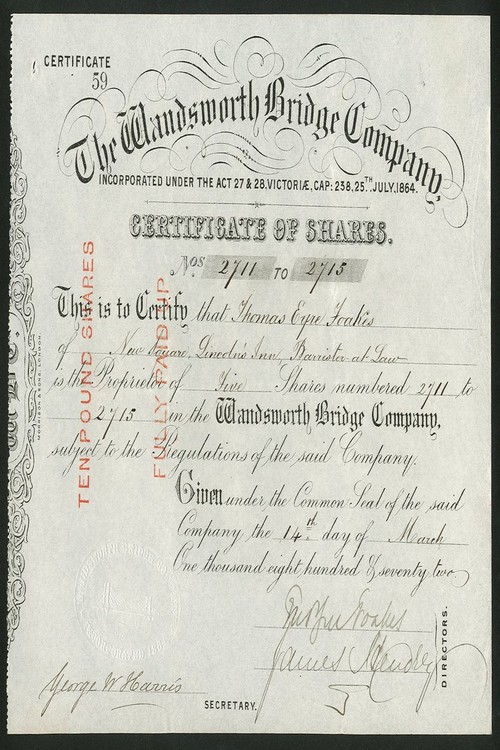 CERTIFICATE
59
The Wandsworth Bridge Company,
INCORPORATED UNDER THE ACT 27 & 28, VICTORIÆ, CAP: 238, 25TH JULY, 1864.
CERTIFICATE OF SHARES.
Nos 2711 TO 2715
This is to Certify that Thomas Eyre Foakes
of New Square, Lincoln's Inn, Barrister at Law
is the Proprietor of Five Shares numbered 2711 to
2715 in the Wandsworth Bridge Company,
subject to the Regulations of the said Company.
Given under the Common Seal of the said
Company the 14th day of March
One thousand eight hundred & seventy two
TEN POUND SHARES
FULLY PAID UP
Foakes
James
DIRECTORS.
George W Harris
SECRETARY.